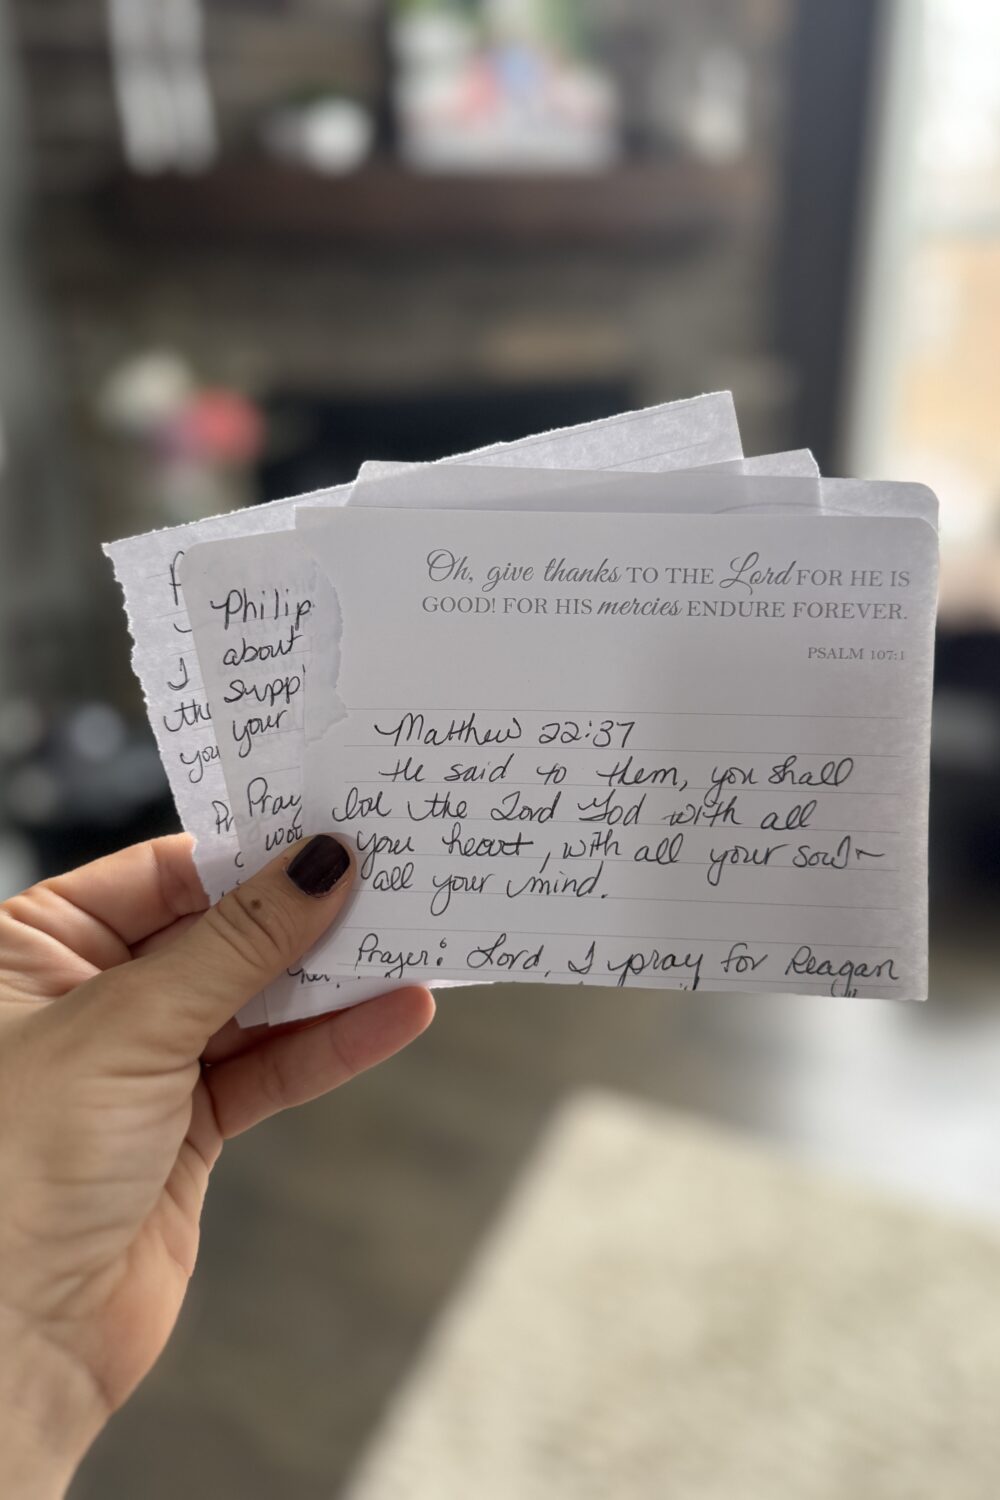 Oh, give thanks TO THE Lord FOR HE IS
GOOD! FOR HIS mercies ENDURE FOREVER.
PSALM 107:1
Matthew 22:37
He said to them, you shall
the Lord God with all
your heart, with all your soul ~
all your mind.
Prayer: Lord, I pray for Reagan
Philip
about
supp
your
Pray
woo
I
the
you
Pr